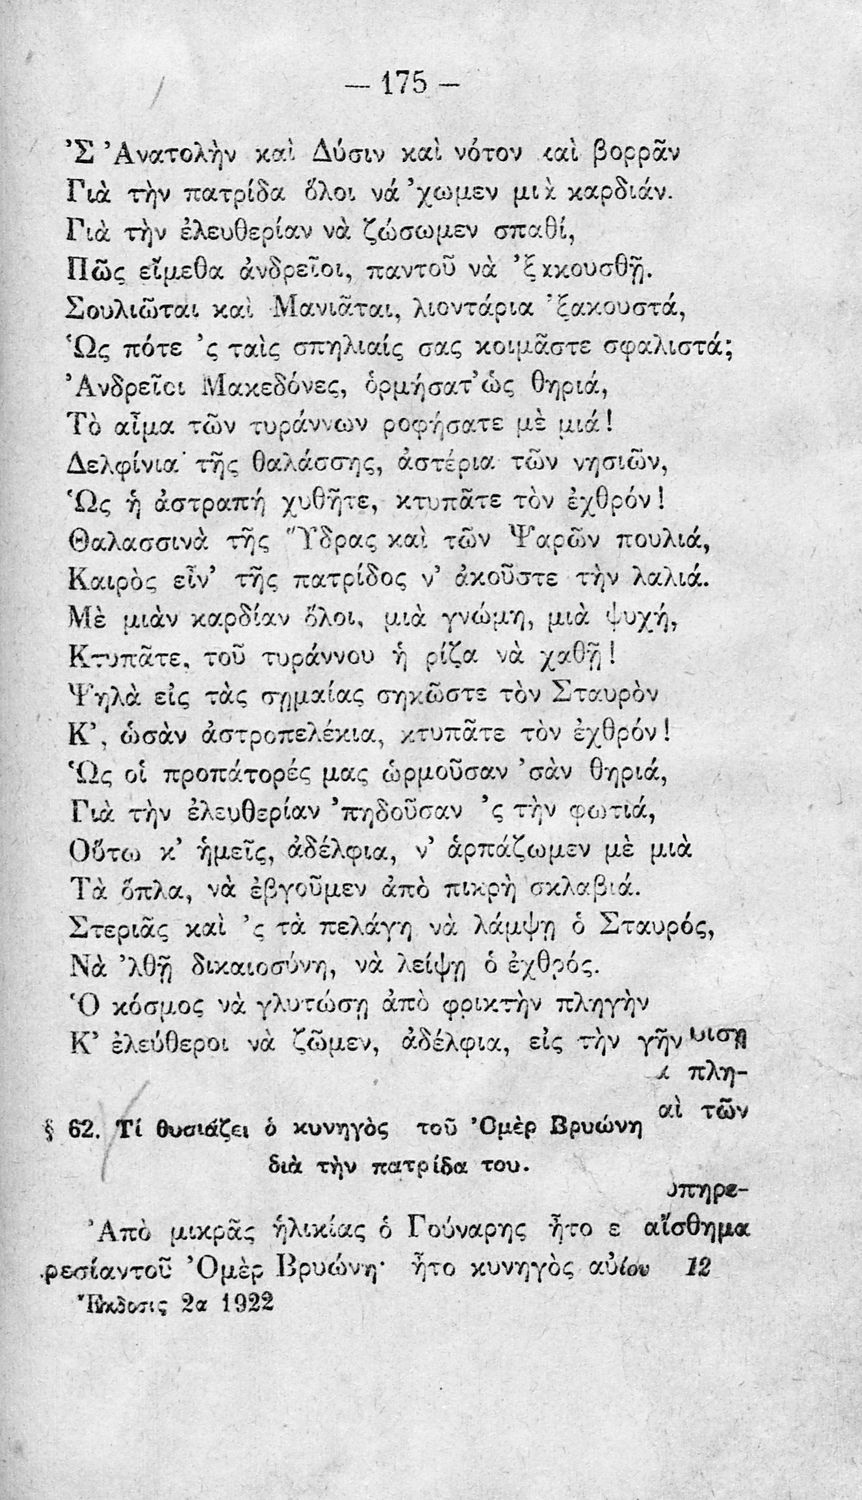 — 175 —
'Σ 'Ανατολὴν καὶ Δύσιν καὶ νότον καὶ βορρᾶν
Γιὰ τὴν πατρίδα ὅλοι νά 'χωμεν μιὰ καρδιάν.
Γιὰ τὴν ἐλευθερίαν νὰ ζώσωμεν σπαθί,
Πῶς εἴμεθα ἀνδρεῖοι, παντοῦ νὰ 'ξακουσθῇ.
Σουλιῶται καὶ Μανιᾶται, λιοντάρια 'ξακουστά,
Ὡς πότε 'ς ταὶς σπηλιαίς σας κοιμᾶστε σφαλιστά;
Ἀνδρεῖοι Μακεδόνες, ὁρμήσατ' ὡς θηριά,
Τὸ αἷμα τῶν τυράννων ροφήσατε μὲ μιά!
Δελφίνια τῆς θαλάσσης, ἀστέρια τῶν νησιῶν,
Ὡς ἡ ἀστραπή χυθῆτε, κτυπᾶτε τὸν ἐχθρόν!
Θαλασσινὰ τῆς Ὕδρας καὶ τῶν Ψαρῶν πουλιά,
Καιρὸς εἶν' τῆς πατρίδος ν' ἀκοῦστε τὴν λαλιά.
Μὲ μιὰν καρδίαν ὅλοι, μιὰ γνώμη, μιὰ ψυχή,
Κτυπᾶτε, τοῦ τυράννου ἡ ρίζα νὰ χαθῇ!
Ψηλὰ εἰς τὰς σημαίας σηκῶστε τὸν Σταυρὸν
Κ', ὡσὰν ἀστροπελέκια, κτυπᾶτε τὸν ἐχθρόν!
Ὡς οἱ προπάτορές μας ὡρμοῦσαν 'σὰν θηριά,
Γιὰ τὴν ἐλευθερίαν 'πηδοῦσαν 'ς τὴν φωτιά,
Οὕτω κ' ἡμεῖς, ἀδέλφια, ν' ἁρπάζωμεν μὲ μιὰ
Τὰ ὅπλα, νὰ ἐβγοῦμεν ἀπὸ πικρὴ σκλαβιά.
Στεριᾶς καὶ 'ς τὰ πελάγη νὰ λάμψῃ ὁ Σταυρός,
Νὰ 'λθῇ δικαιοσύνη, νὰ λείψῃ ὁ ἐχθρός.
Ὁ κόσμος νὰ γλυτώσῃ ἀπὸ φρικτὴν πληγὴν
Κ' ἐλεύθεροι νὰ ζῶμεν, ἀδέλφια, εἰς τὴν γῆν
πλη-
αὶ τῶν
§ 62. Τί θυσιάζει ὁ κυνηγὸς τοῦ Ὀμὲρ Βρυώνη
διὰ τὴν πατρίδα του.
πηρε-
Ἀπὸ μικρᾶς ἡλικίας ὁ Γούναρης ἦτο ε αἴσθημα
ρεσίαντοῦ Ὀμὲρ Βρυώνη· ἦτο κυνηγὸς αὐ 12
Ἔκδοσις 2α 1922